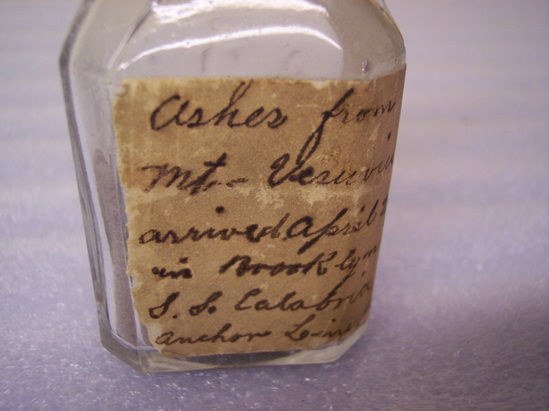 Ashes from
Mt. Vesuviu
arrived April 2
in Brooklyn
S. S. Calabria
Anchor Line